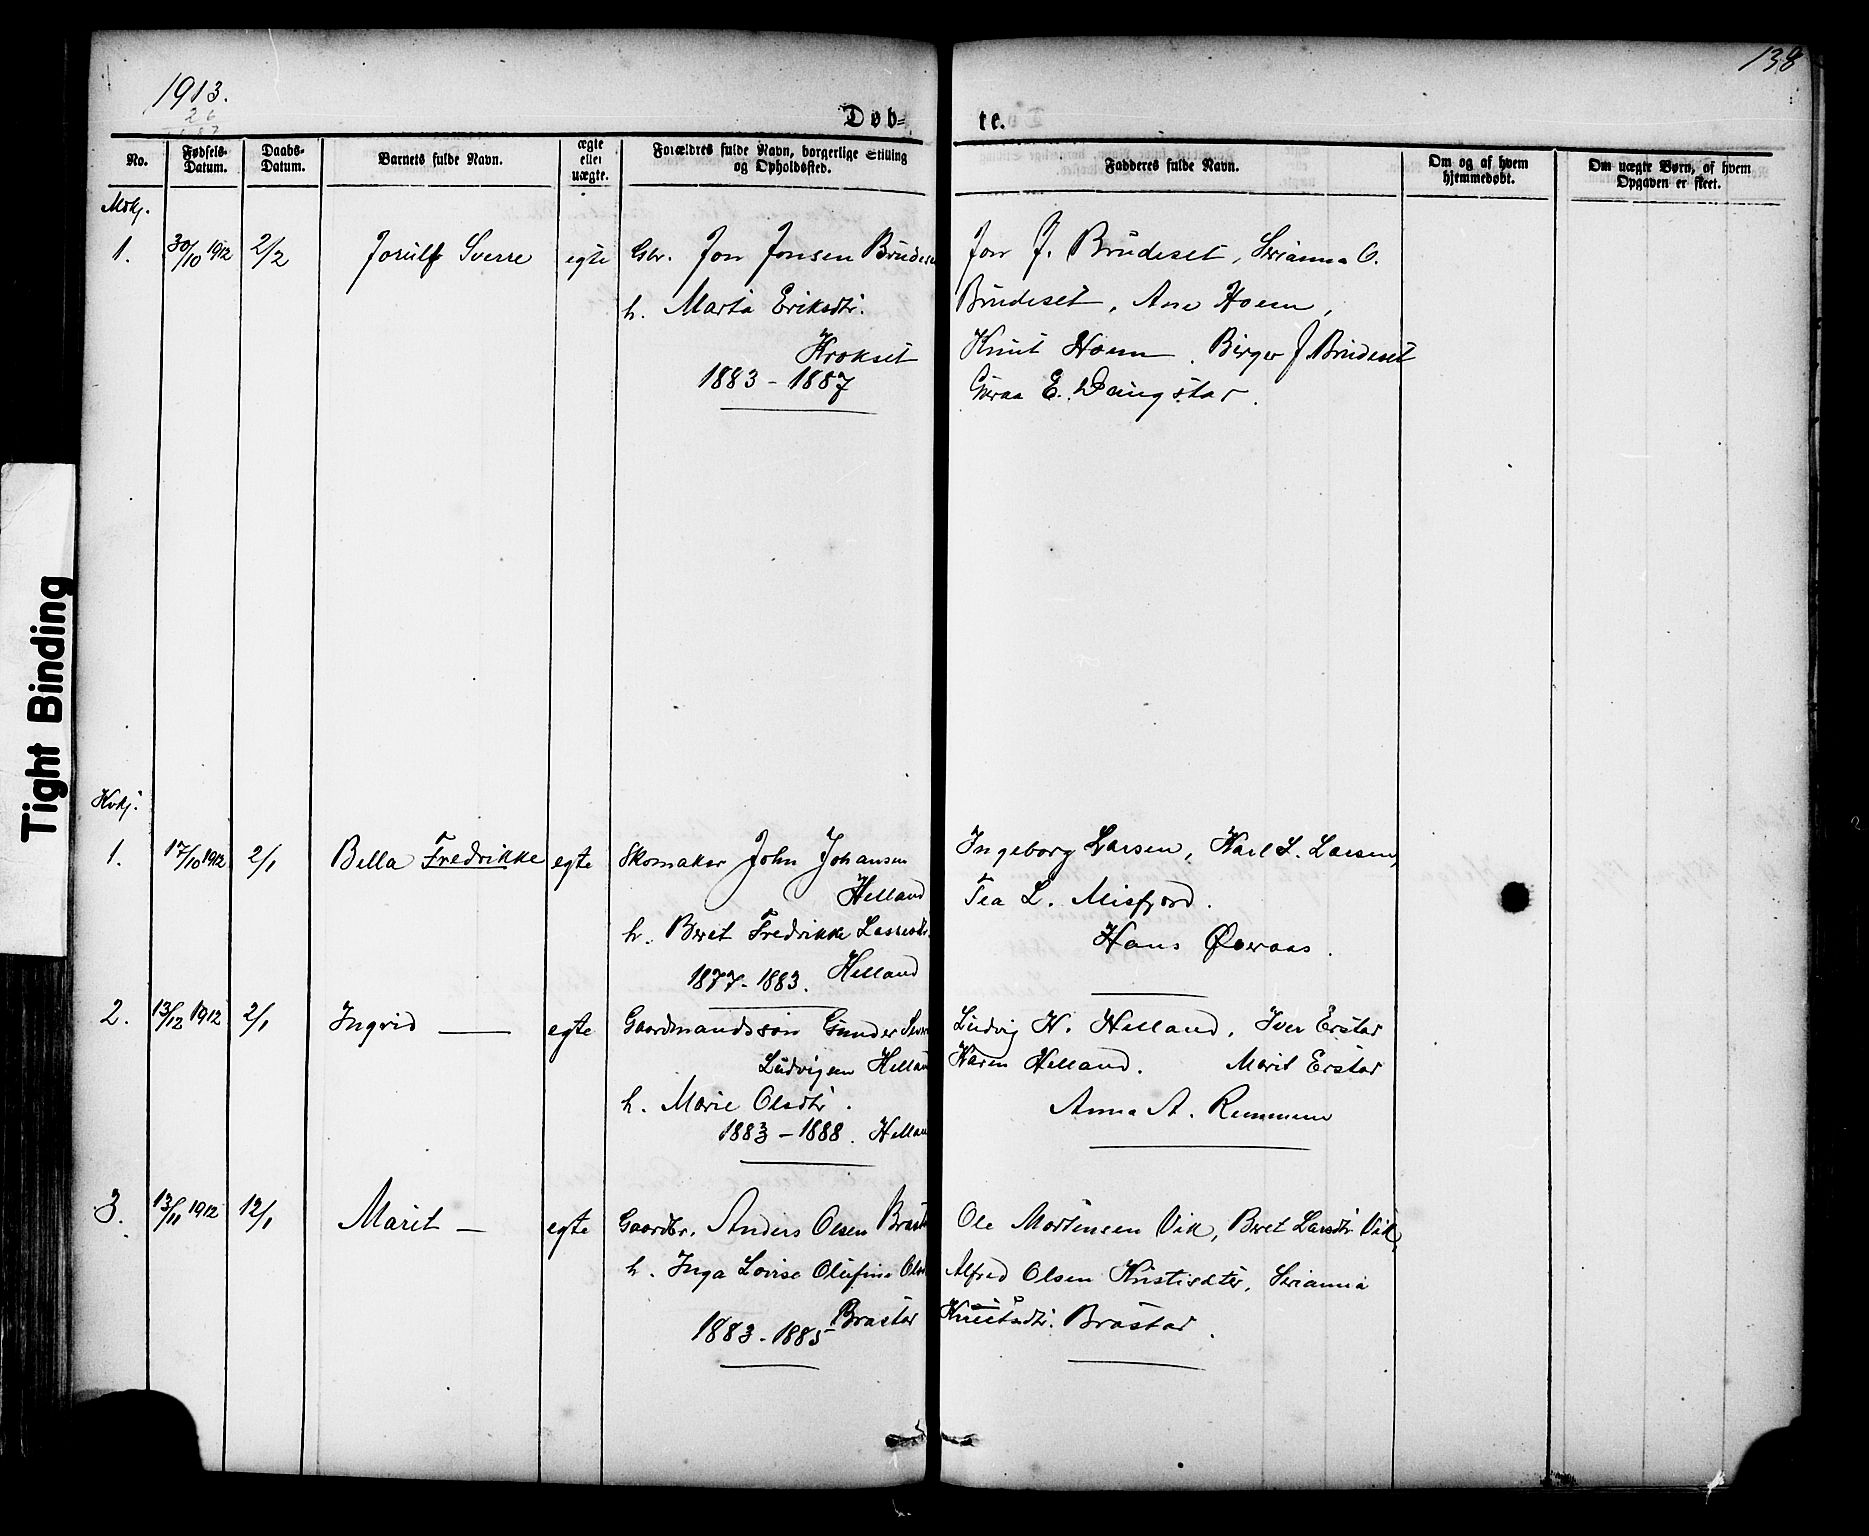 1913.
138
26
Døb-
te.
No.
Fødsels-
Datum.
Daabs-
Datum.
Barnets fulde Navn.
ægte
eller
uægte.
Forældres fulde Navn, borgerlige Stilling
og Opholdssted.
Fadderes fulde Navn.
Om og af hvem
hjemmedøbt.
Om uægte Børn, af hvem
Opgaven er skeet.
Mdkj.
1. 30/10 1912 2/2 Jorulf Sverre egte Gbr. Jon Jonsen Brudeset
h. Marta Eriksdtr.
Krokset
1883 - 1887
Jon J. Brudeset, Serianna O.
Brudeset, Ane Hoem,
Knut Hoem, Birger J. Brudeset
Guraa E. Daugstar.
Tight Binding
Kvkj.
1. 17/10 1912 2/1 Bella Fredrikke egte Skomaker John Johansen
Helland
h. Beret Fredrikke Lassesdtr.
Helland
1877 - 1883.
Ingeborg Larsen, Karl L. Larsen,
Tea L. Misfjord.
Hans Øveraas.
2. 13/12 1912 2/1 Ingrid — egte Gaardmandssøn Gunder
Ludvigsen Helland
h. Marie Olsdtr.
1883 - 1888. Helland
Ludvig H. Helland, Iver Erstar
Karen Helland. Marit Erstar
Anna A. Remmem
3. 13/11 1912 12/1 Marit — egte Gaardbr. Anders Olsen Brastar
h. Inga Lovise Olufine Olsd
Brastar
1883 - 1885
Ole Mortensen Vik, Beret Larsdtr Vik,
Alfred Olsen Kristisæter, Serianna
Knutsdtr. Brastad.